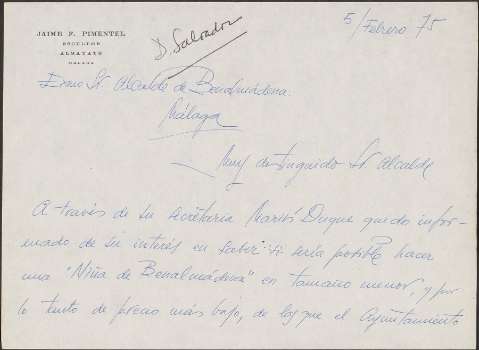 JAIME F. PIMENTEL
ESCULTOR
ALMAYATE
MALAGA
D. Salvador
5/Febrero 75
Sr. Alcalde de Benalmádena.
Málaga
Muy distinguido Sr. Alcalde
A través de su secretaria Duque quedo infor-
mado de su interés en saber si sería posible hacer
una "Niña de Benalmádena" en tamaño menor, y por
lo tanto de precio más bajo, de las que el Ayuntamiento